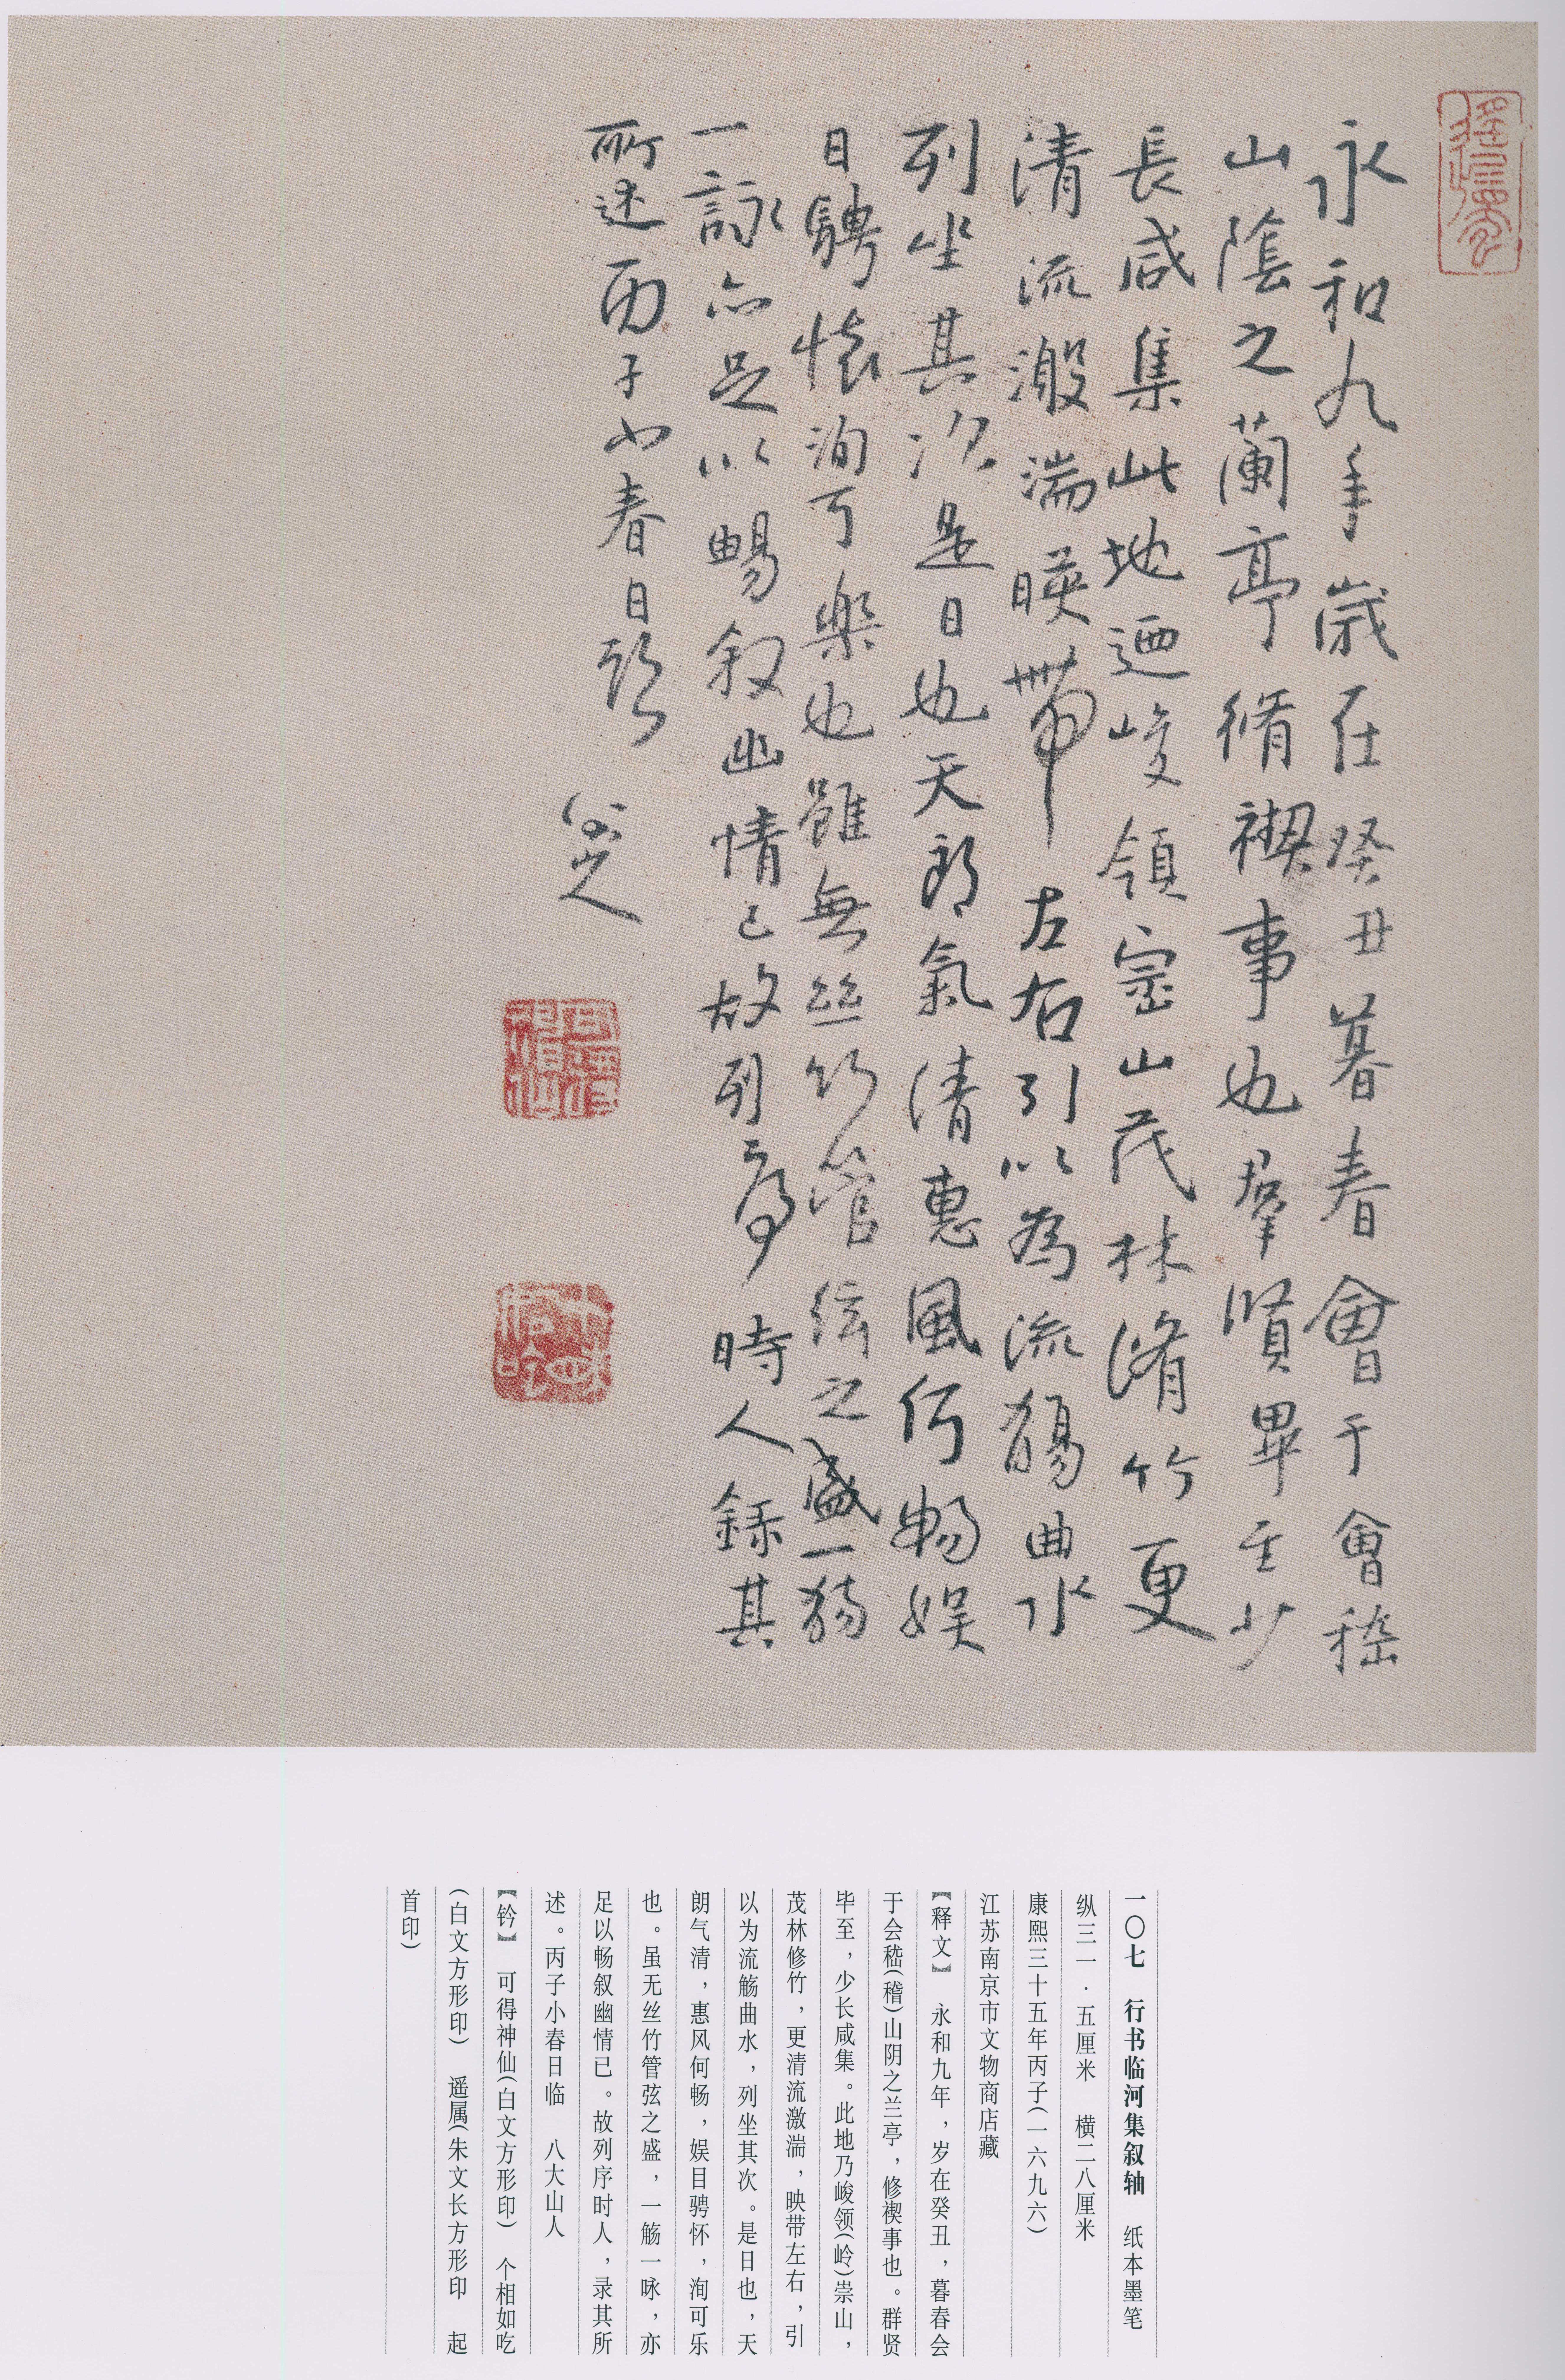 永和九年歲在癸丑暮春會于會嵇
山陰之蘭亭脩禊事也羣賢畢至少
長咸集此地迺峻領崇山茂林脩竹更
清流激湍暎帶左右引以為流觴曲水
列坐其次是日也天朗氣清惠風何暢娱
日騁懷洵可樂也雖無丝竹管絃之盛一觴
一詠亦足以暢叙幽情已故列序時人録其
所述丙子小春日臨
八大山人
一〇七　行书临河集叙轴　纸本墨笔
纵三一·五厘米　横二八厘米
康熙三十五年丙子(一六九六)
江苏南京市文物商店藏
【释文】　永和九年，岁在癸丑，暮春会
于会嵇(稽)山阴之兰亭，修禊事也。群贤
毕至，少长咸集。此地乃峻领(岭)崇山，
茂林修竹，更清流激湍，映带左右，引
以为流觞曲水，列坐其次。是日也，天
朗气清，惠风何畅，娱目骋怀，洵可乐
也。虽无丝竹管弦之盛，一觞一咏，亦
足以畅叙幽情已。故列序时人，录其所
述。丙子小春日临　八大山人
【钤】　可得神仙(白文方形印)　个相如吃
(白文方形印)　遥属(朱文长方形印　起
首印)